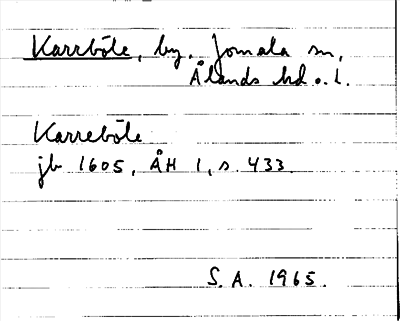 Karrböle, by, Jomala sn,
Ålands hd o. l.
Karreböle
jb 1605, ÅH 1, s. 433.
S. A. 1965.